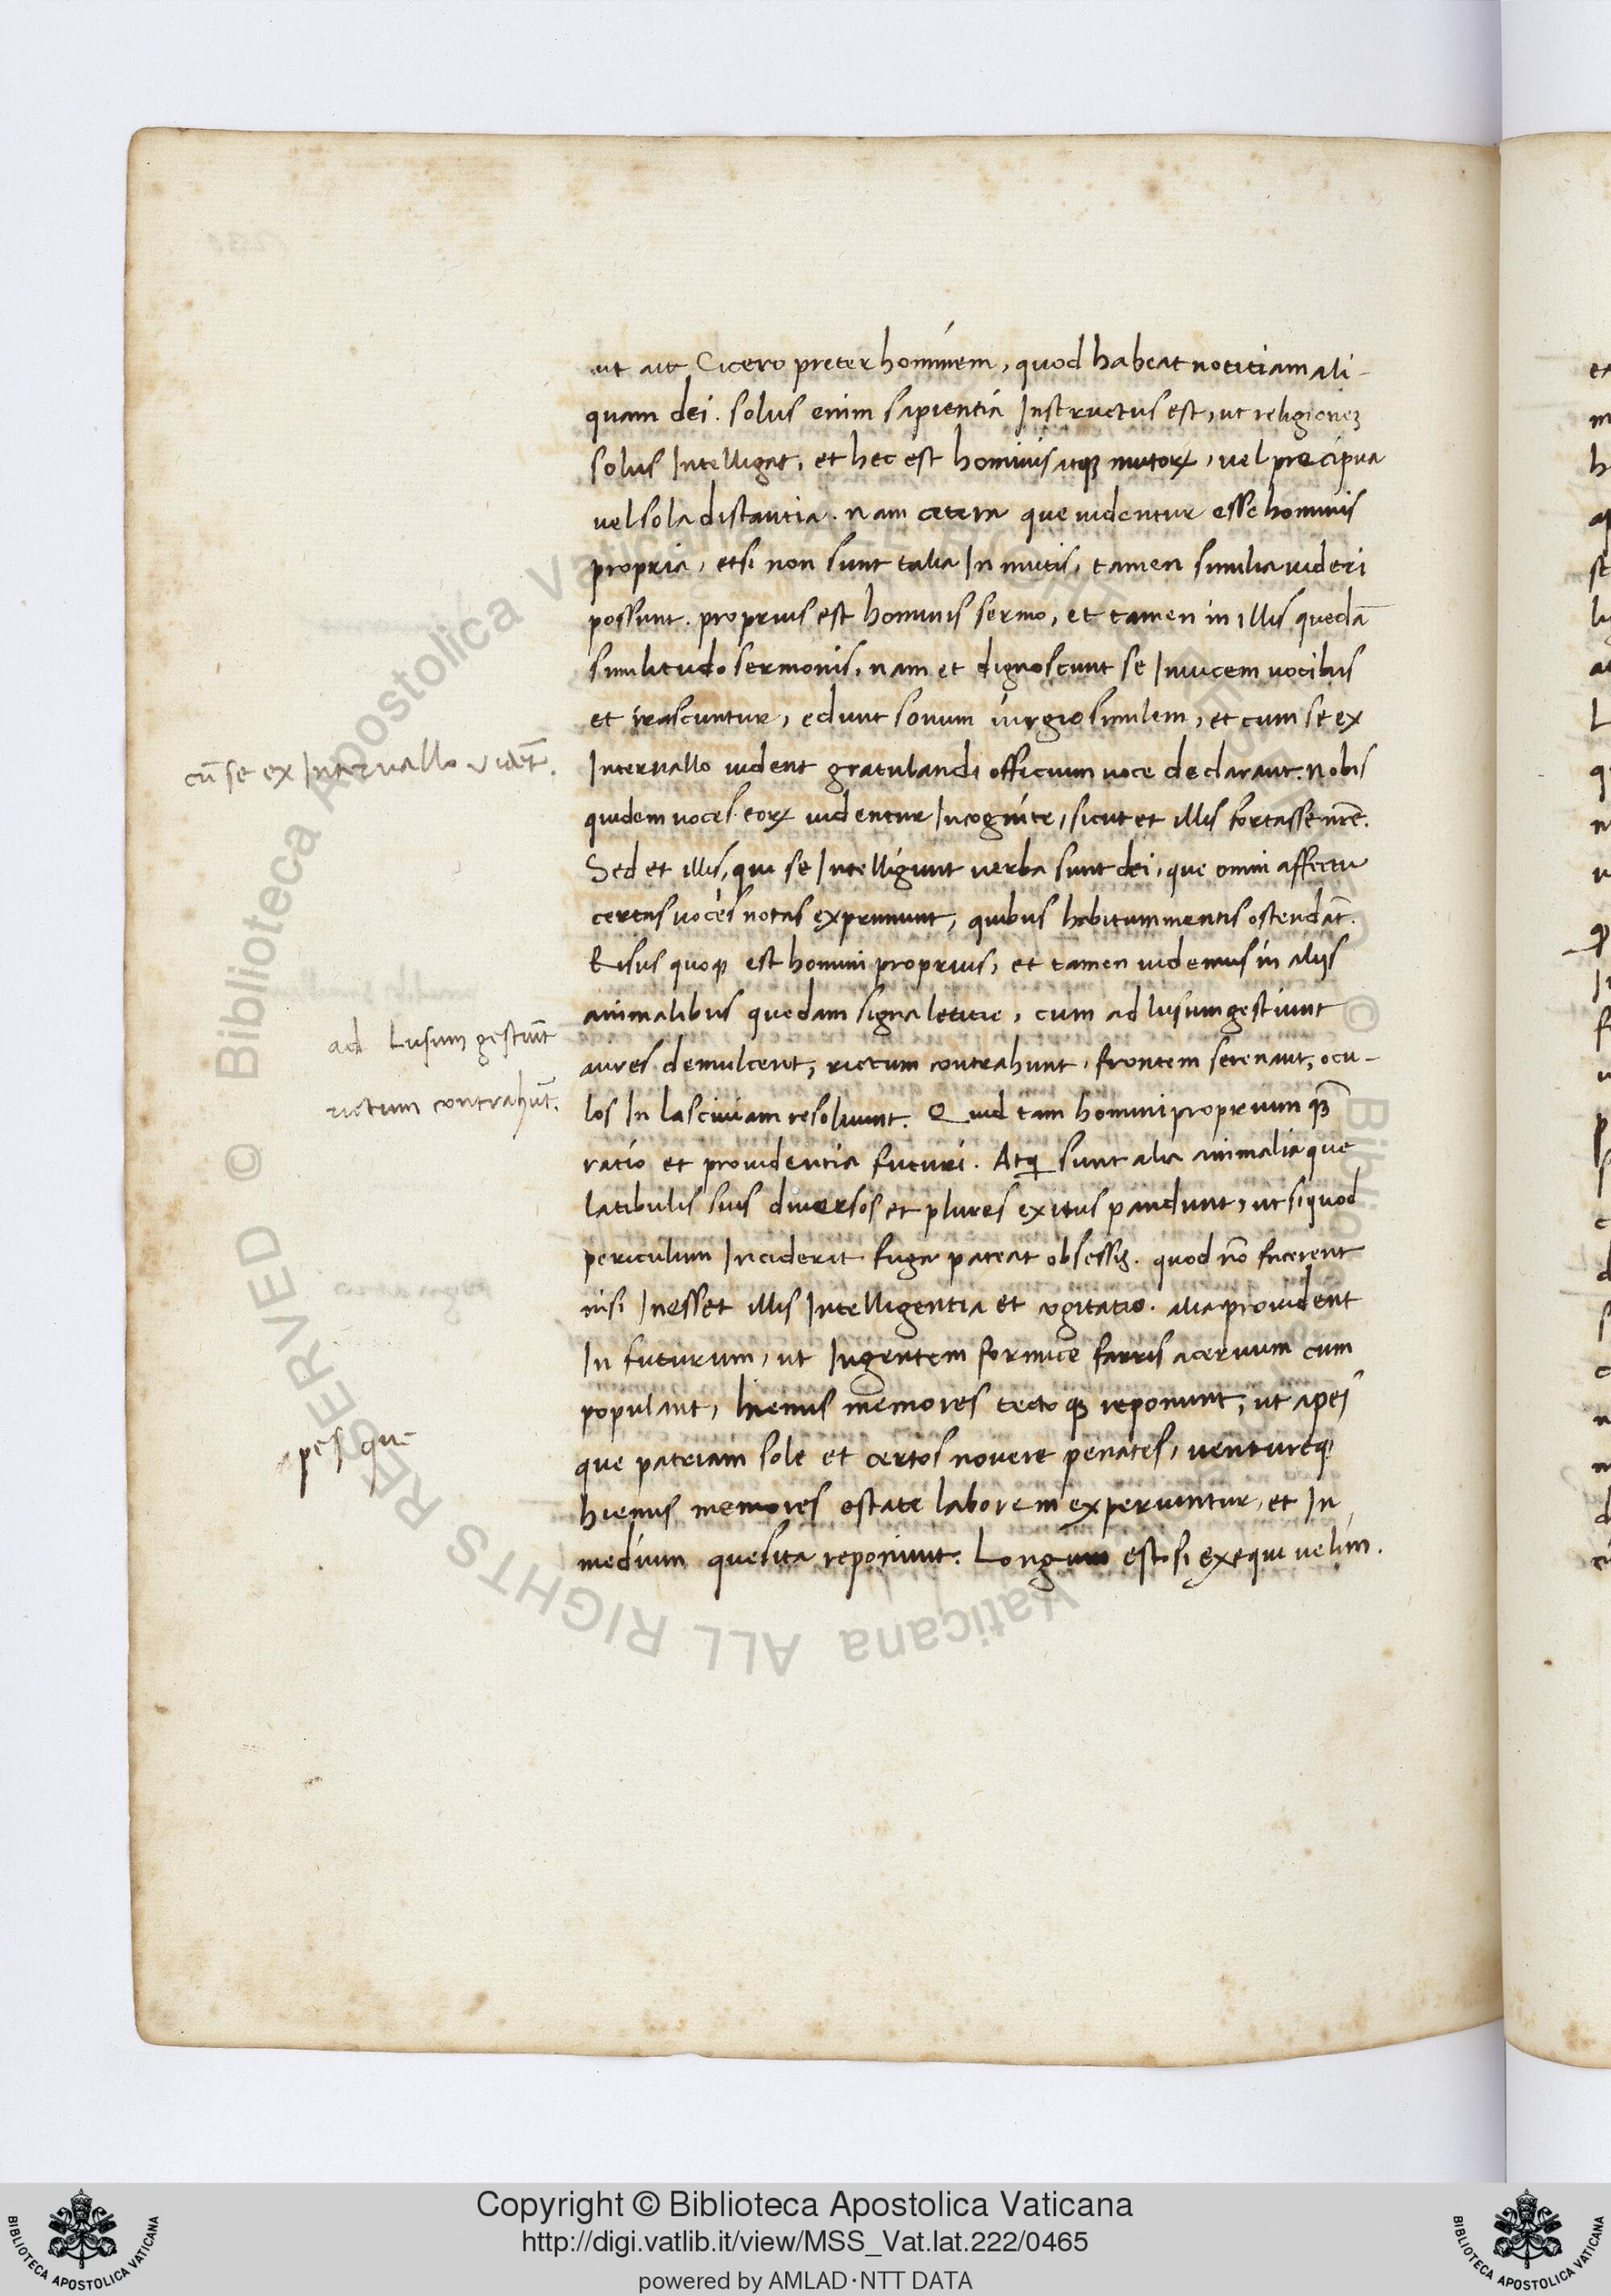 ut ait Cicero preter hominem, quod habeat notitiam ali-
quam dei. solus enim sapientia Instructus est, ut religioneȝ
solus Intelligat, et hec est hominis atqꝫ mutoꝝ, vel precipua
vel sola distantia. nam cetera que videntur esse hominis
propria, etsi non sunt talia In mutis, tamen similia videri
possunt. proprius est hominis sermo, et tamen in illis quedā
similitudo sermonis, nam et dignoscunt se Invicem vocibus
et irascuntur, edunt sonum iurgio similem, et cum se ex
cū se ex Intervallo vidēt.
Intervallo vident gratulandi officium voce declarant. nobis
quidem voces eoꝝ videntur Incognite, sicut et illis fortasse nr̄e.
Sed et illis, qui se Intelligunt verba sunt dei, que omni affectu
certas voces notas exprimunt, quibus habitum mentis ostendāt.
Risus quoqꝫ est homini proprius, et tamen videmus in aliis
animalibus quedam signa letitie, cum ad lusum gestiunt
ad Lusum gestiūt
aures demulcent, rictum contrahunt, frontem serenant, ocu-
rictum contrahūt.
los In lasciviam resolvunt. Quid tam homini proprium qꝫ̄
ratio et providentia futuri. Atqi sunt alia animalia que
latibulis suis diversos et plures exitus pandunt, ut si quod
periculum Inciderit fuga pateat obsessis. quod nō facerent
nisi Inesset illis Intelligentia et cogitatio. alia provident
In futurum, ut Ingentem formice farris acervum cum
populant, hiemis memores tectoqꝫ reponunt, ut apes
pes que
que patriam sole et certos novere penates, ventureqꝫ
hiemis memores estate laborem experiuntur, et In
medium quesita reponunt. Longum est si exequi velim.
© Biblioteca Apostolica Vaticana ALL RIGHTS RESERVED
© Biblioteca Apostolica Vaticana ALL RIGHTS RESERVED
Copyright © Biblioteca Apostolica Vaticana
http://digi.vatlib.it/view/MSS_Vat.lat.222/0465
powered by AMLAD·NTT DATA
BIBLIOTECA APOSTOLICA VATICANA
BIBLIOTECA APOSTOLICA VATICANA